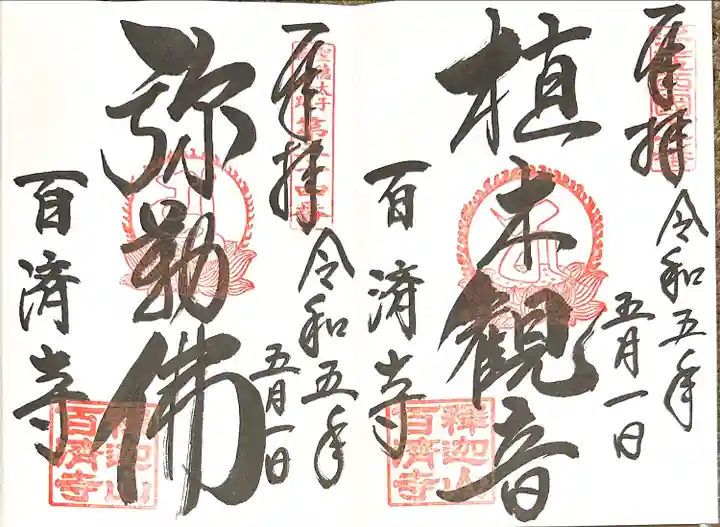 奉拝
令和五年
五月一日
植木観音
百済寺
釋迦山
百濟寺
奉拝
聖徳太子
令和五年
五月一日
弥勒佛
百済寺
釋迦山
百濟寺